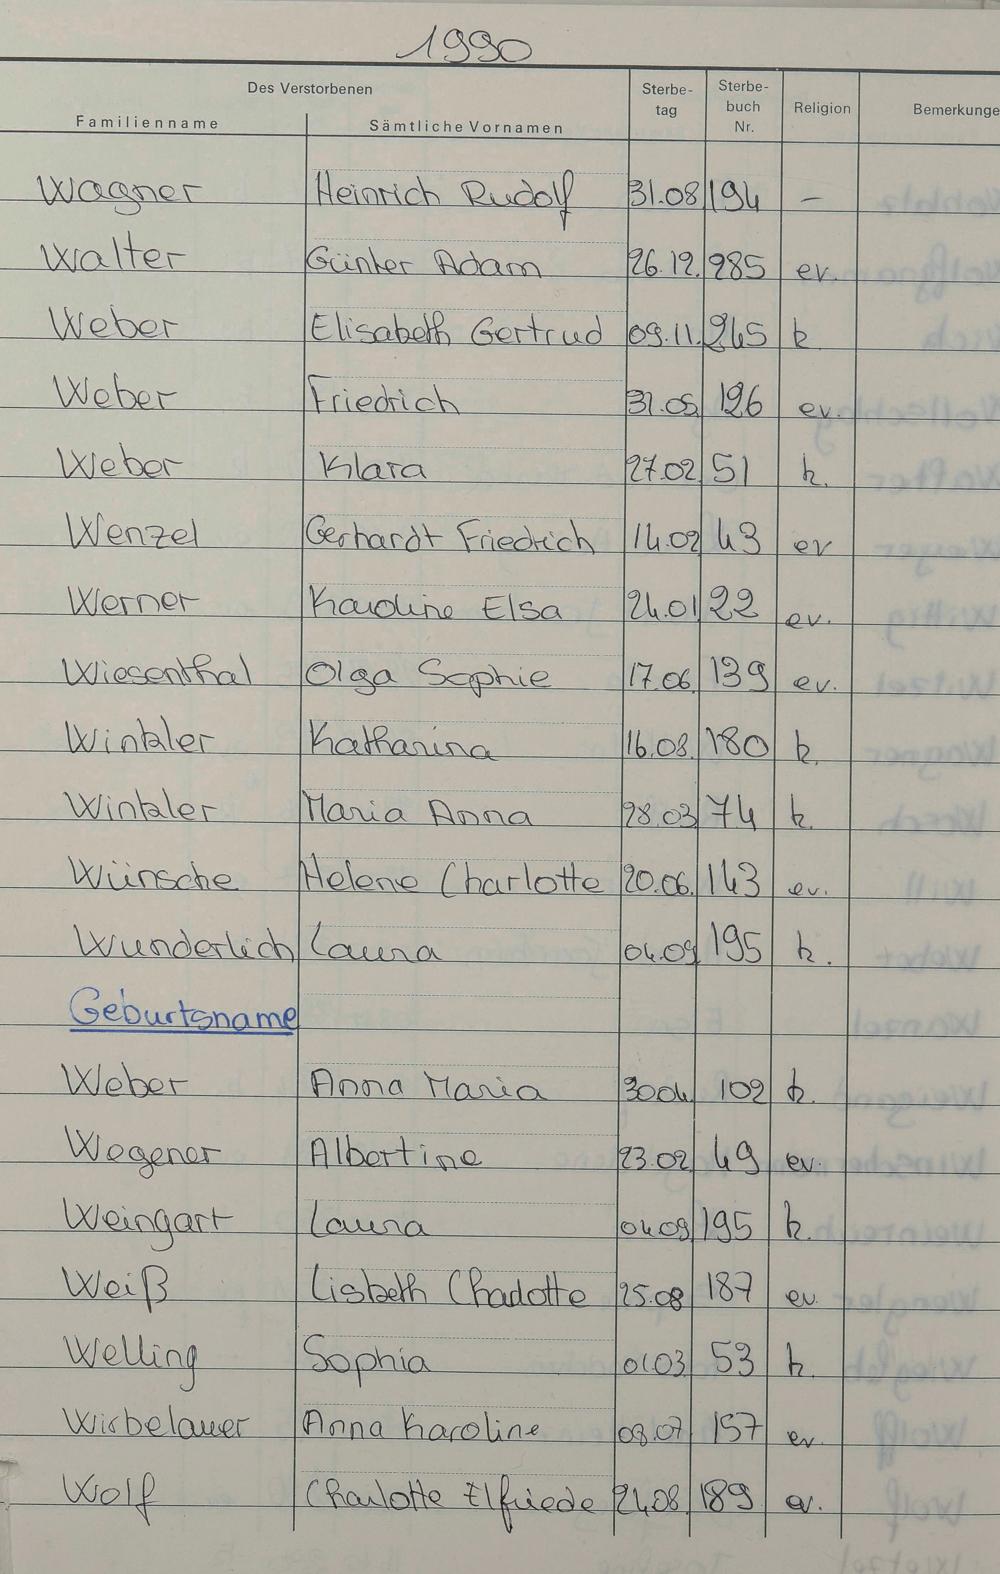 1990
Des Verstorbenen
Familienname Sämtliche Vornamen Sterbe-tag Sterbe-buch Nr. Religion Bemerkunge
Wagner Heinrich Rudolf 31.08 194 –
Walter Günter Adam 26.12. 285 ev.
Weber Elisabeth Gertrud 09.11. 245 k
Weber Friedrich 31.05 126 ev.
Weber Klara 27.02 51 k.
Wenzel Gerhardt Friedrich 14.02 43 ev
Werner Karoline Elsa 24.01 22 ev.
Wiesenthal Olga Sophie 17.06. 139 ev.
Winkler Katharina 16.08. 180 k.
Winkler Maria Anna 28.03 74 k.
Wünsche Helene Charlotte 20.06. 143 ev.
Wunderlich Laura 04.09 195 k.
Geburtsname
Weber Anna Maria 3004 102 k.
Wegener Albertine 23.02 49 ev.
Weingart Laura 04.09 195 k.
Weiß Lisbeth Charlotte 25.08 187 ev.
Welling Sophia 01.03 53 k.
Wirbelauer Anna Karoline 08.07 157 ev
Wolf Charlotte Elfriede 24.08 189 ev.